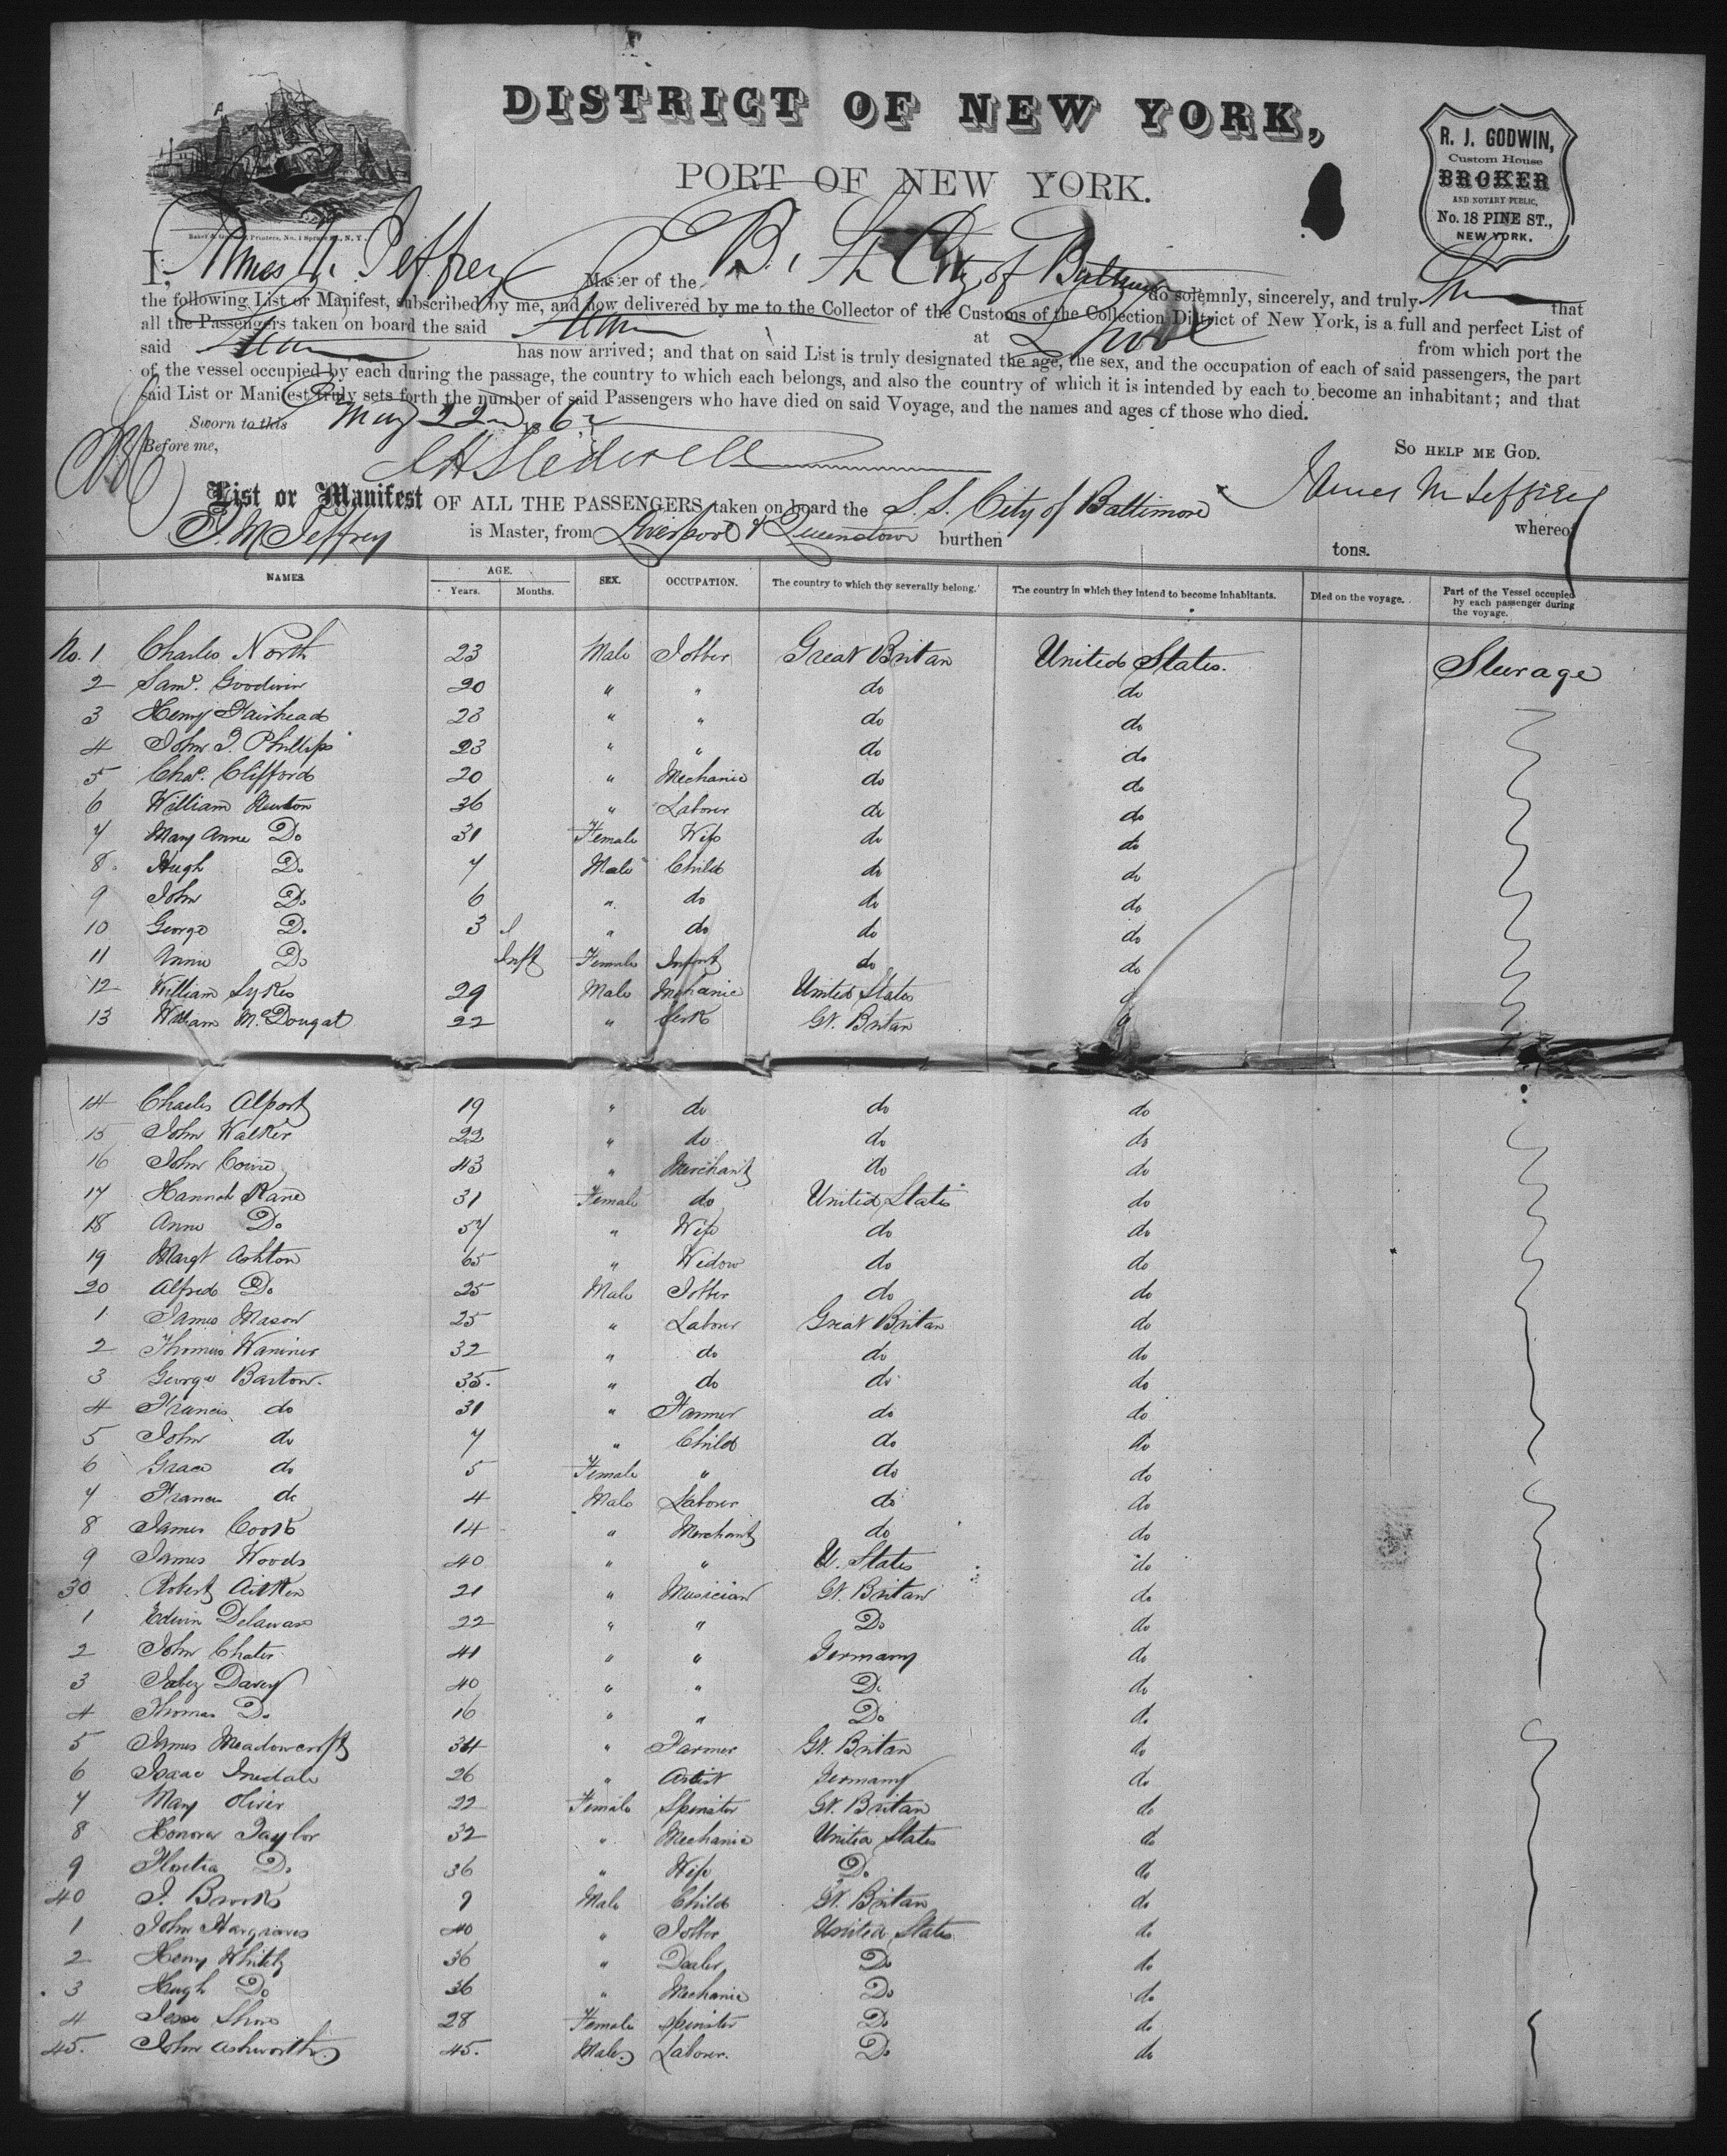 DISTRICT OF NEW YORK,
PORT OF NEW YORK.
R. J. GODWIN,
Custom House
BROKER
AND NOTARY PUBLIC,
No. 18 PINE ST.,
NEW YORK.
I, James M. Jeffrey Master of the B. St City of Baltimore do solemnly, sincerely, and truly that
the following List or Manifest, subscribed by me, and now delivered by me to the Collector of the Customs of the Collection District of New York, is a full and perfect List of
all the Passengers taken on board the said at L'pool from which port the
said has now arrived; and that on said List is truly designated the age, the sex, and the occupation of each of said passengers, the part
of the vessel occupied by each during the passage, the country to which each belongs, and also the country of which it is intended by each to become an inhabitant; and that
said List or Manifest truly sets forth the number of said Passengers who have died on said Voyage, and the names and ages of those who died.
Sworn to this May 22nd 186
Before me,
So HELP ME GOD.
James M Jeffrey
List or Manifest OF ALL THE PASSENGERS taken on board the S.S. City of Baltimore whereof
J. M Jeffrey is Master, from Liverpool & Queenstown burthen tons.
NAMES. AGE. Years. Months. SEX. OCCUPATION. The country to which they severally belong. The country in which they intend to become inhabitants. Died on the voyage. Part of the Vessel occupied by each passenger during the voyage.
No. 1 Charles North 23 Male Jobber Great Britan United States. Steerage
2 Saml. Goodwin 20 " " do do
3 Henry Fairhead 23 " " do do
4 John J. Phillips 23 " " do do
5 Chas. Clifford 20 " Mechanic do do
6 William Newton 36 " Laborer do do
7 Mary Anne Do 31 Female Wife do do
8 Hugh Do 7 Male Child do do
9 John Do 6 " do do do
10 George Do 3 " do do do
11 Annie Do Inft Female Infant do do
12 William Sykes 29 Male Mechanic United States
13 William McDougal 22 " Clerk Gt. Britan
14 Charles Alport 19 " do do do
15 John Walker 22 " do do do
16 John 43 " Merchant do do
17 Hannah Kane 31 Female do United States do
18 Anne Do 57 " Wife do do
19 Margt Ashton 65 " Widow do do
20 Alfred Do 25 Male Jobber do do
1 James Mason 25 " Laborer Great Britan do
2 Thomas 32 " do do do
3 George Barton. 35. " do do do
4 Francis do 31 " Farmer do do
5 John do 7 " Child do do
6 Grace do 5 Female " do do
7 Francis do 4 Male Laborer do do
8 James Cook 14 " Merchant do do
9 James Woods 40 " " U. States do
30 Robert Aitken 21 " Musician Gt. Britan do
1 Edwin 22 " " Do do
2 John Chater 41 " " Germany do
3 Jabez Davey 40 " " Do do
4 Thomas Do 16 " " Do do
5 James Meadowcroft 34 " Farmer Gt. Britan do
6 Isaac 26 " Artist Germany do
7 Mary Oliver 22 Female Spinster Gt. Britan do
8 Honora Taylor 32 " Mechanic United States do
9 Do 36 " Wife Do do
40 J. Brooks 9 Male Child Gt. Britan do
1 John Hargraves 40 " Jobber United States do
2 Henry 36 " Dealer Do do
3 Hugh Do 36 " Mechanic Do do
4 28 Female Spinster Do do
45. John Ashworth 45. Male Laborer. Do do